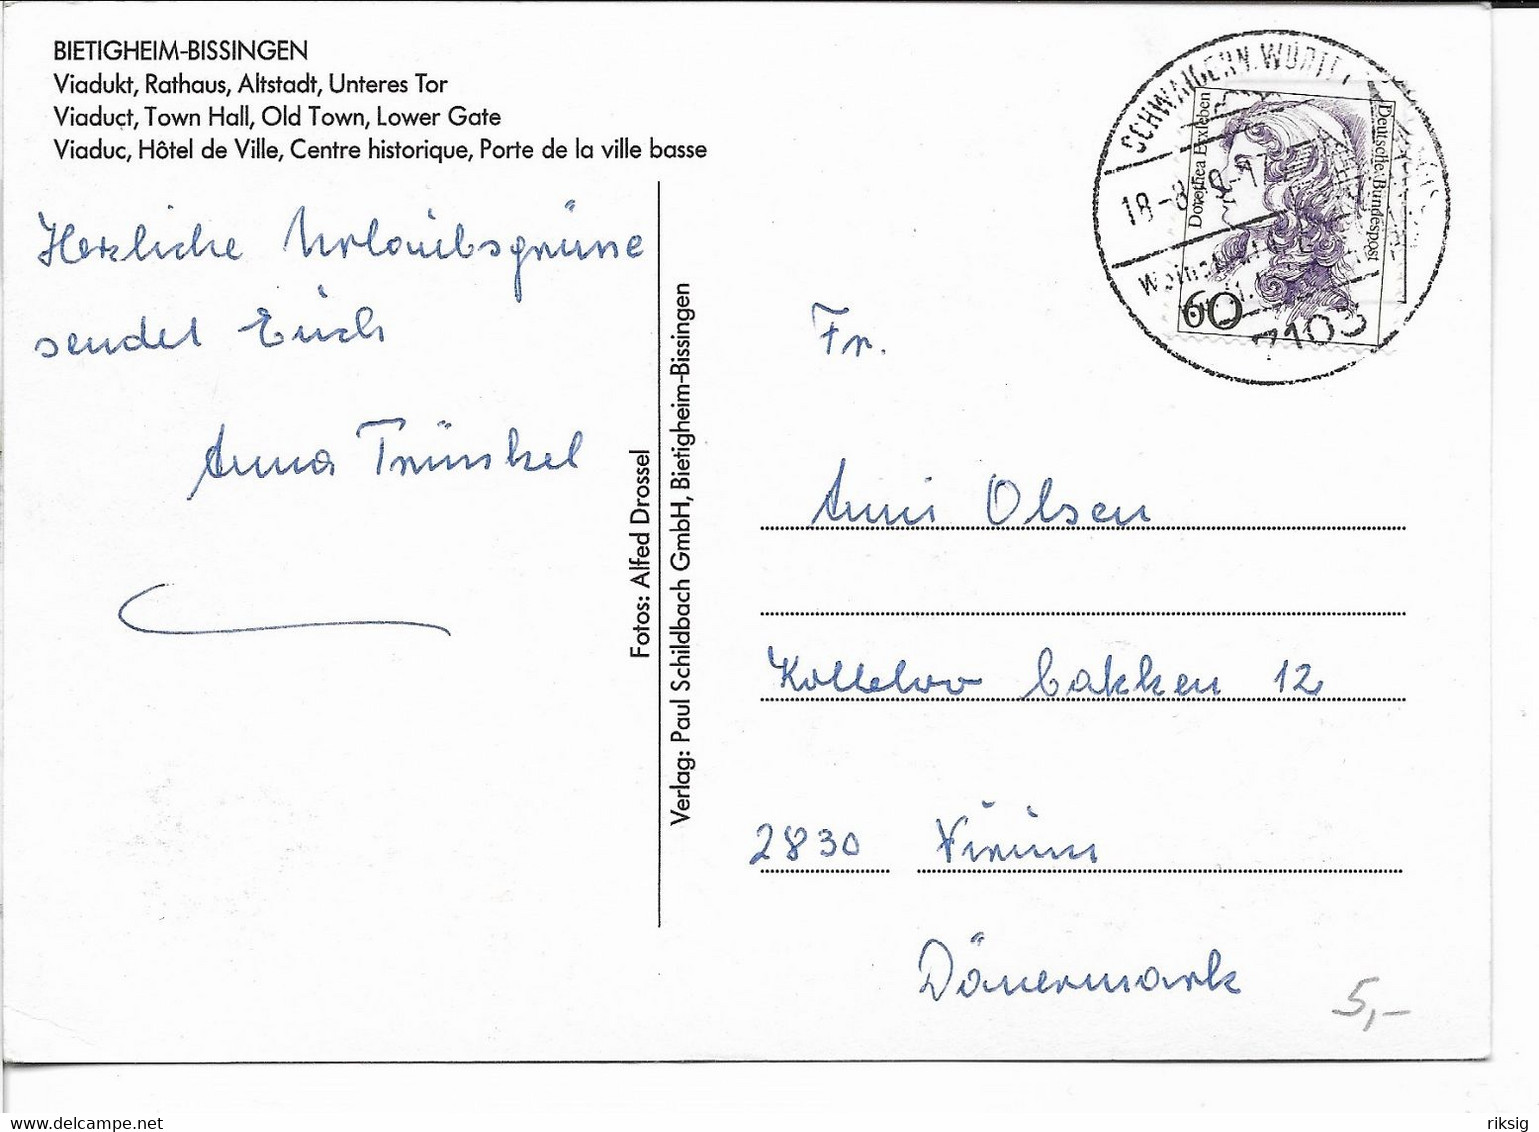 BIETIGHEIM-BISSINGEN
Viadukt, Rathaus, Altstadt, Unteres Tor
Viaduct, Town Hall, Old Town, Lower Gate
Viaduc, Hôtel de Ville, Centre historique, Porte de la ville basse
Herzliche Urlaubsgrüsse
sendet Euch
Anna
Fotos: Alfed Drossel
Verlag: Paul Schildbach GmbH, Bietigheim-Bissingen
SCHWAIGERN, WÜRTT
18-8
7103
Dorothea Erxleben
Deutsche Bundespost
60
Fr.
Anni Olsen
bakken 12
2830 Virum
Dänemark
5,-
www.delcampe.net
riksig